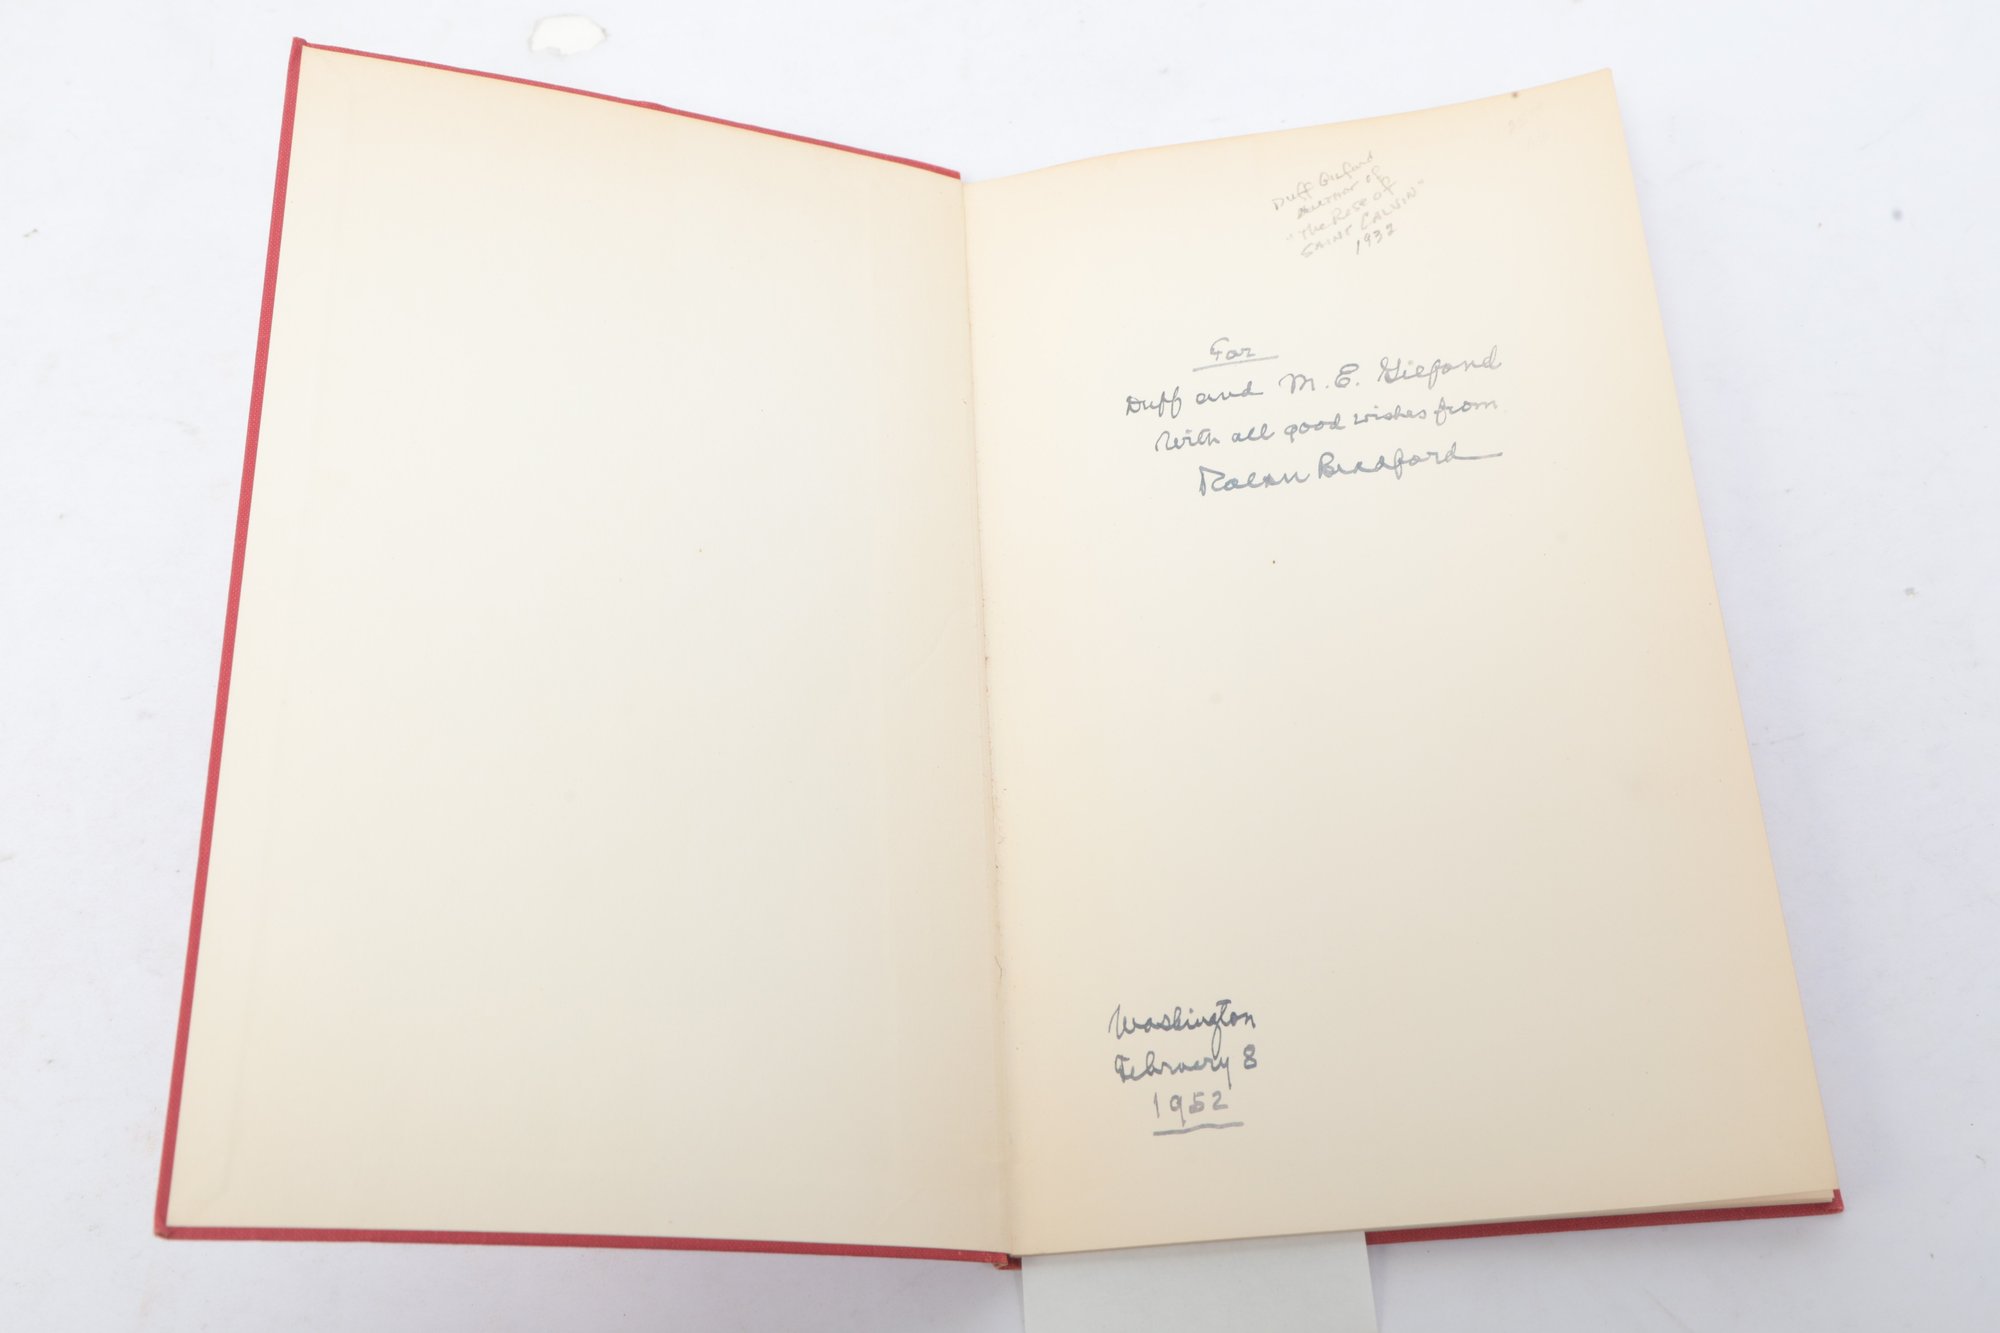 Duff Gilfond
Author of
"The Rise of
SAINT CALVIN"
1932
For
Duff and M. E. Gilfond
With all good wishes from
Bradford
Washington
February 8
1952